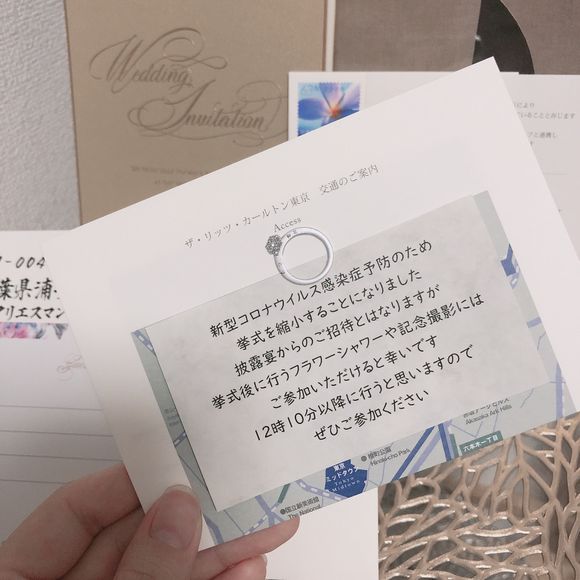 Wedding
Invitation
ザ・リッツ・カールトン東京 交通のご案内
Access
新型コロナウイルス感染症予防のため
挙式を縮小することになりました
披露宴からのご招待とはなりますが
挙式後に行うフラワーシャワーや記念撮影には
ご参加いただけると幸いです
12時10分以降に行うと思いますので
ぜひご参加ください
Akasaka Ark Hills
六本木一丁目
檜町公園
Hinokicho Park
東京
ミッドタウン
Tokyo
Midtown
国立新美術館
The National
-004
葉県浦
アリエスマン